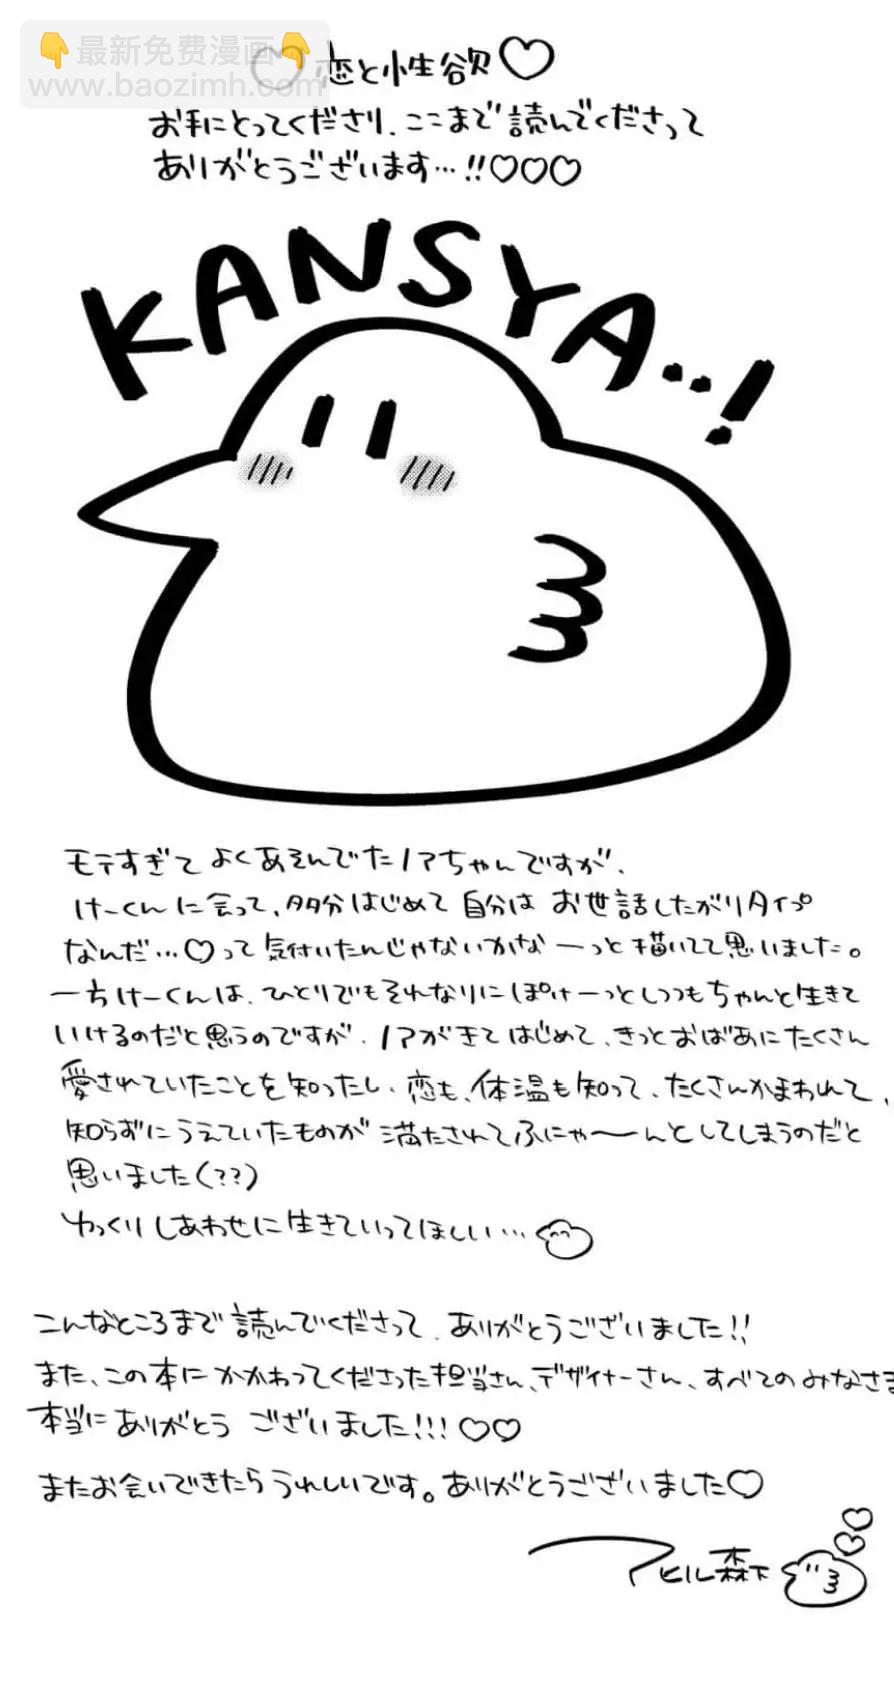 👇最新免费漫画👇
www.baozimh.com
♡恋と小生欲♡
お手にとってくださり、ここまで読んでくださって
ありがとうございます…!!♡♡♡
KANSYA..!
モテすぎてよくあそんでたノアちゃんですが、
けーくんに会って、多分はじめて自分はお世話したがりタイプ
なんだ…♡って気付いたんじゃないかなーっと描いてて思いました。
一方けーくんは、ひとりでもそれなりにぽけーっとしつつもちゃんと生きて
いけるのだと思うのですが、ノアがきてはじめて、きっとおばあにたくさん
愛されていたことを知ったし、恋も、体温も知って、たくさんかまわれて、
知らずにうえていたものが満たされてふにゃ〜んとしてしまうのだと
思いました(??)
ゆっくりしあわせに生きていってほしい…
こんなところまで読んでくださって、ありがとうございました!!
また、この本にかかわってくださった担当さん、デザイナーさん、すべてのみなさま
本当にありがとうございました!!!♡♡
またお会いできたらうれしいです。ありがとうございました♡
アヒル森下